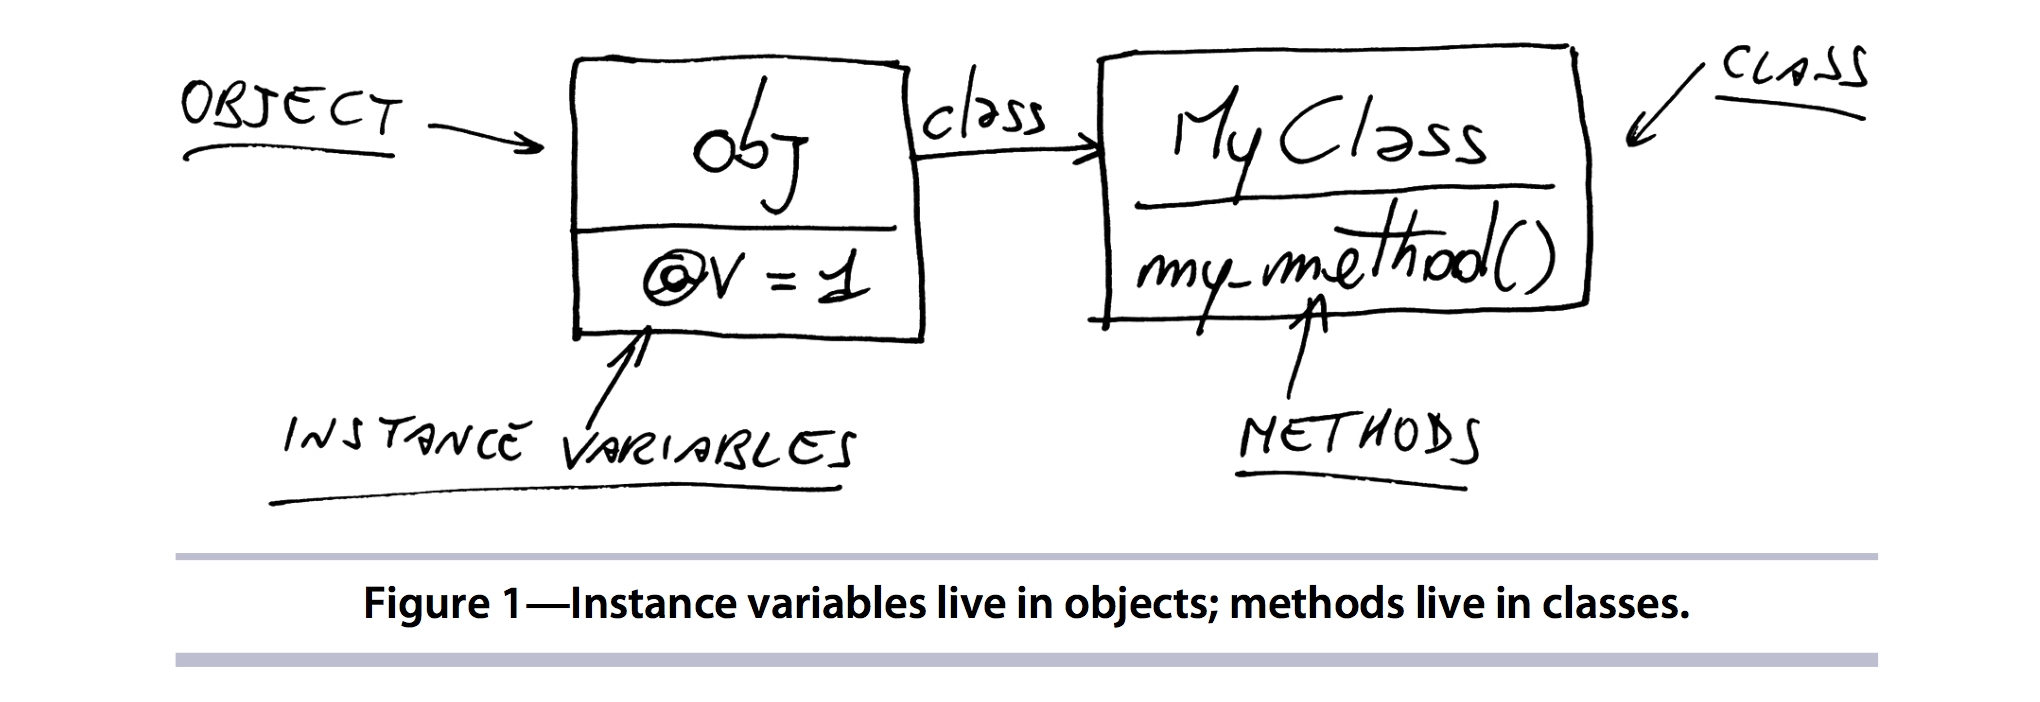 OBJECT
obj
@v = 1
class
MyClass
my_method()
CLASS
INSTANCE VARIABLES
METHODS
Figure 1—Instance variables live in objects; methods live in classes.